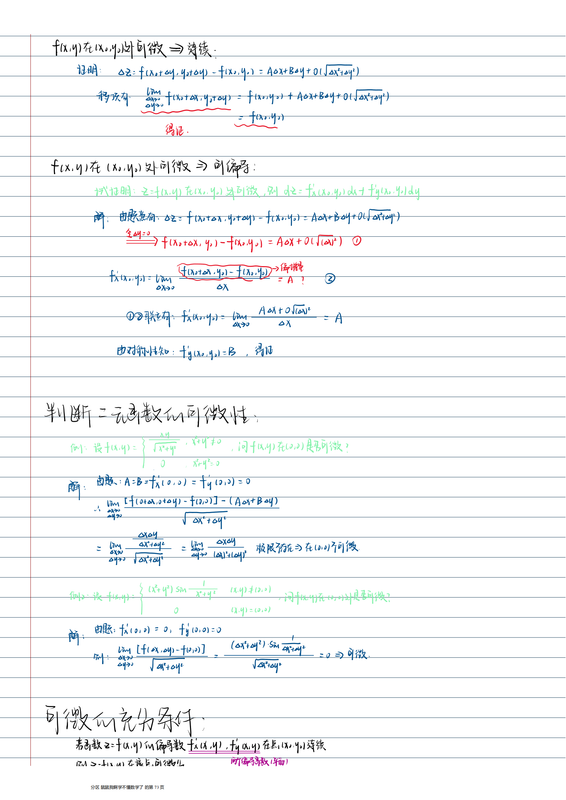 f(x,y)在(x₀,y₀)处可微 ⇒ 连续:
证明: Δz=f(x₀+Δx,y₀+Δy)-f(x₀,y₀)=AΔx+BΔy+o(√Δx²+Δy²)
lim Δx→0 Δy→0 f(x₀+Δx,y₀+Δy)=f(x₀,y₀)+AΔx+BΔy+o(√Δx²+Δy²)
=f(x₀,y₀)
得证.
f(x,y)在(x₀,y₀)处可微 ⇒ 可偏导:
证明: z=f(x,y)在(x₀,y₀)处可微,则 dz=f'x(x₀,y₀)dx+f'y(x₀,y₀)dy
解: 由题意有: Δz=f(x₀+Δx,y₀+Δy)-f(x₀,y₀)=AΔx+BΔy+o(√Δx²+Δy²)
令Δy=0 ⇒ f(x₀+Δx,y₀)-f(x₀,y₀)=AΔx+o(√(Δx)²) ①
f'x(x₀,y₀)=lim Δx→0 f(x₀+Δx,y₀)-f(x₀,y₀) / Δx =A? → 偏增量 ②
①②联立有: f'x(x₀,y₀)=lim Δx→0 AΔx+o√(Δx)² / Δx =A
由对称性知: f'y(x₀,y₀)=B,得证
判断二元函数的可微性:
例1: 设f(x,y)={ xy/√x²+y² , x²+y²≠0 ,问f(x,y)在(0,0)是否可微?
0 x²+y²=0
解: 由题: A=B=f'x(0,0)=f'y(0,0)=0
∴ lim Δx→0 Δy→0 [f(0+Δx,0+Δy)-f(0,0)]-(AΔx+BΔy) / √Δx²+Δy²
= lim Δx→0 Δy→0 ΔxΔy/√Δx²+Δy² / √Δx²+Δy² = lim Δx→0 Δy→0 ΔxΔy / (Δx)²+(Δy)² 极限不存在⇒在(0,0)不可微
例2: 设f(x,y)={ (x²+y²)sin 1/x²+y² (x,y)≠(0,0) ,问f(x,y)在(0,0)处是否可微?
0 (x,y)=(0,0)
解: 由题: f'x(0,0)=0, f'y(0,0)=0
则: lim Δx→0 Δy→0 [f(Δx,Δy)-f(0,0)] / √Δx²+Δy² = (Δx²+Δy²)sin 1/Δx²+Δy² / √Δx²+Δy² =0 ⇒ 可微.
可微的充分条件:
若函数z=f(x,y)的偏导数f'x(x,y),f'y(x,y)在点(x₀,y₀)连续
则z=f(x,y)在该点可微
的第 11 页